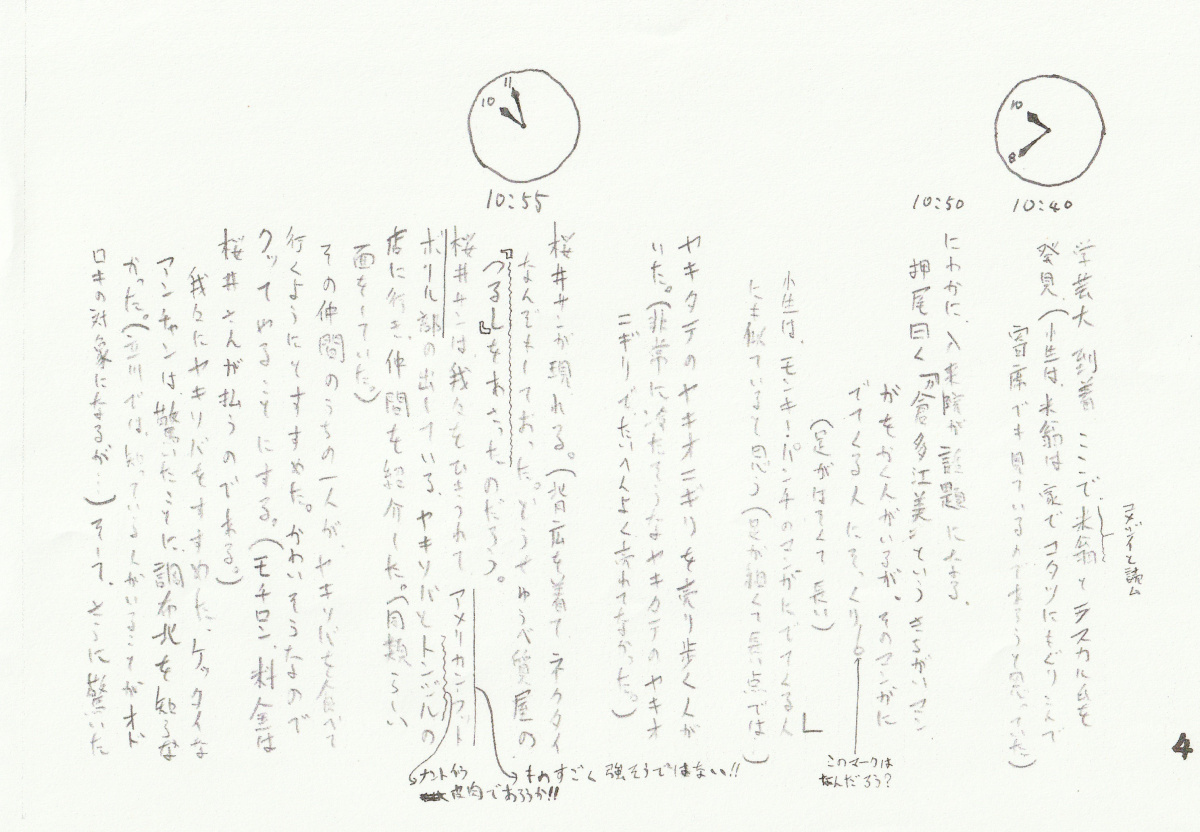 10
8
10:40
学芸大 到着、ここで米翁とラスカル氏を
コメジイと読ム
発見。(小生は、米翁は家でコタツにもぐりこんで
寄席でも見ているんであろうと思っていた)
10:50
にわかに、入来院が話題になる。
押尾曰く「"倉多江美"という きちがいマン
がをかく人がいるが、そのマンガに
でてくる人にそっくり
このマークは
なんだろう?
(足がほそくて長い)
」
小生は、モンキー・パンチのマンガにでてくる人
にも似ていると思う(足が細くて長い点では)
ヤキタテのヤキオニギリを売り歩く人が
いた。(非常に冷たそうなヤキタテのヤキオ
ニギリで、たいへんよく売れてなかった。)
11
10
10:55
桜井サンが現れる。(背広を着て、ネクタイ
なんぞをしておった。どうせゆうべ質屋の
『つるし』をあさったのだろう。
桜井サンは我々をひきつれて アメリカン・フット
ものすごく強そうではない!!
ボール部の出している、ヤキソバとトン汁の
ナント
皮肉であろうか!!
店に行き、仲間を紹介した。(同類らしい
面をしていた)
その仲間のうちの一人が、ヤキソバを食べて
行くようにとすすめた。かわいそうなので
クッてやることにする。(モチロン、料金は
桜井さんが払うのである)
我々にヤキソバをすすめた、ケッタイな
アンチャンは驚いたことに、調布北を知らな
かった。(立川では、知っている人がいることがオド
ロキの対象になるが…)そして、さらに驚いた
4